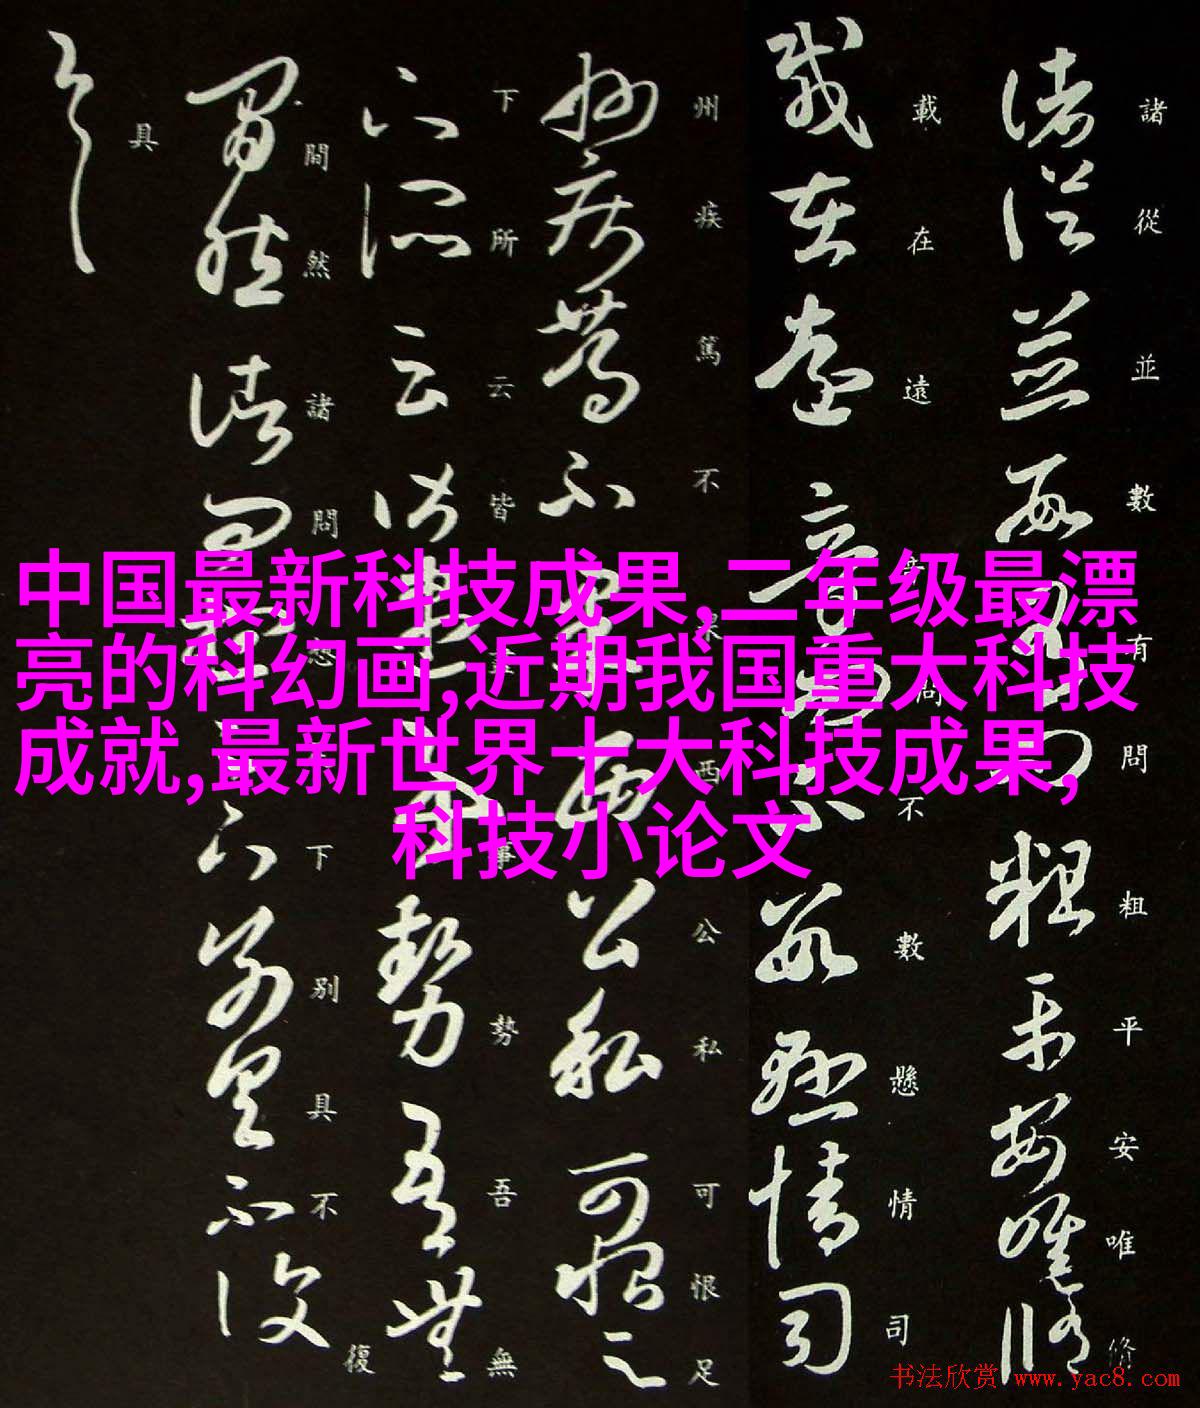 諸從並數有問粗平安唯修
載在遠音問不數懸情司
州疾篤不果西公私可恨足
下所云皆盡事勢吾無
間然諸問想下別具不復
具
中国最新科技成果,二年级最漂
亮的科幻画,近期我国重大科技
成就,最新世界十大科技成果,
科技小论文
书法欣赏 www.yac8.com